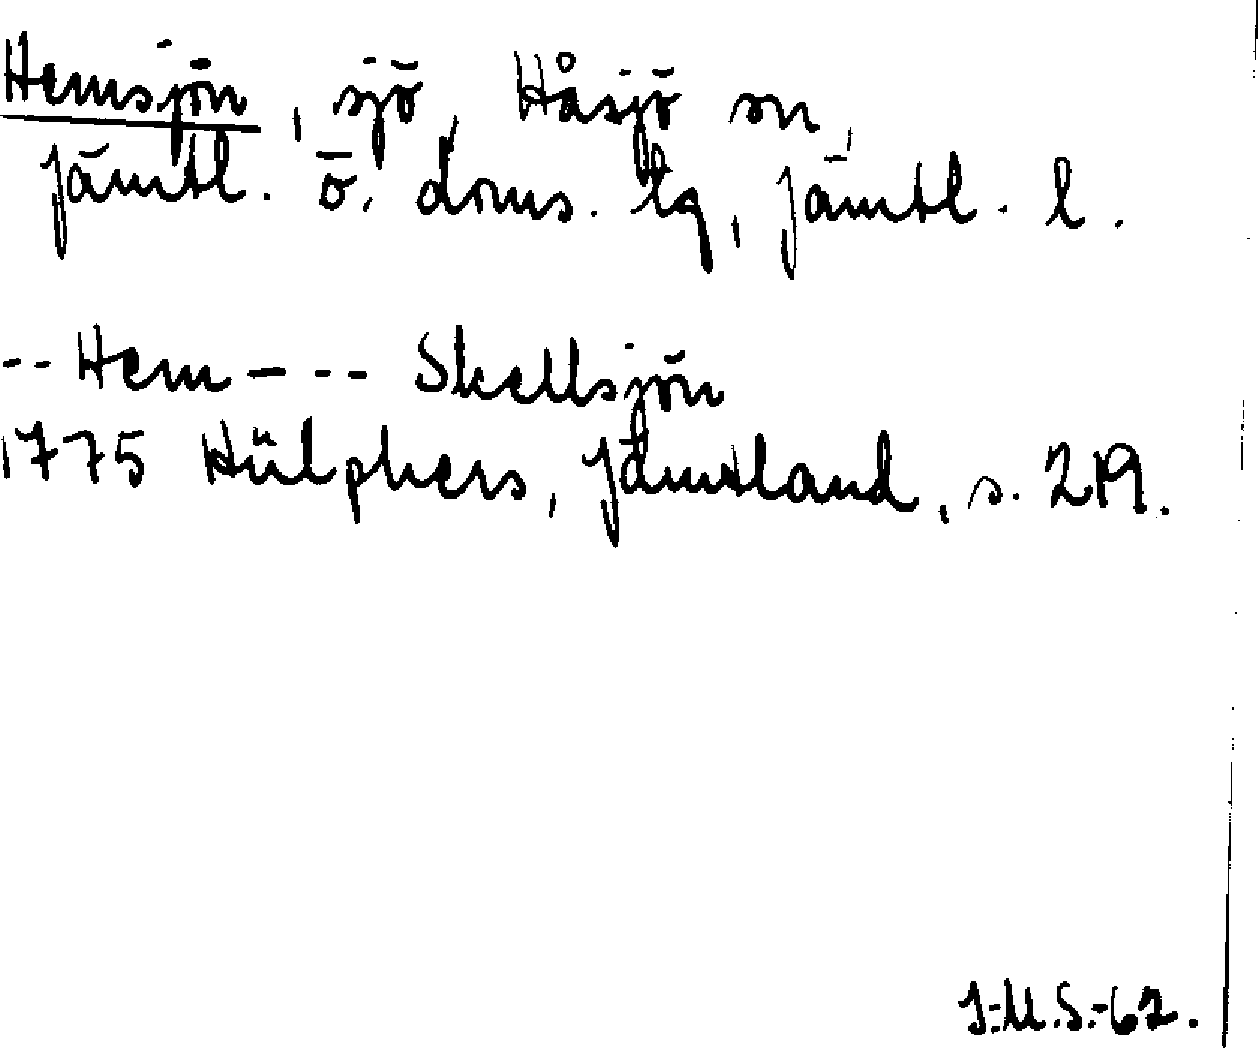 Hemsjön, sjö, Håsjö sn,
Jämtl. ö. doms. lg, Jämtl. l.
-- Hem - -- Skellsjön
1775 Hülphers, Jämtland, s. 219.
I.M.S.-62.